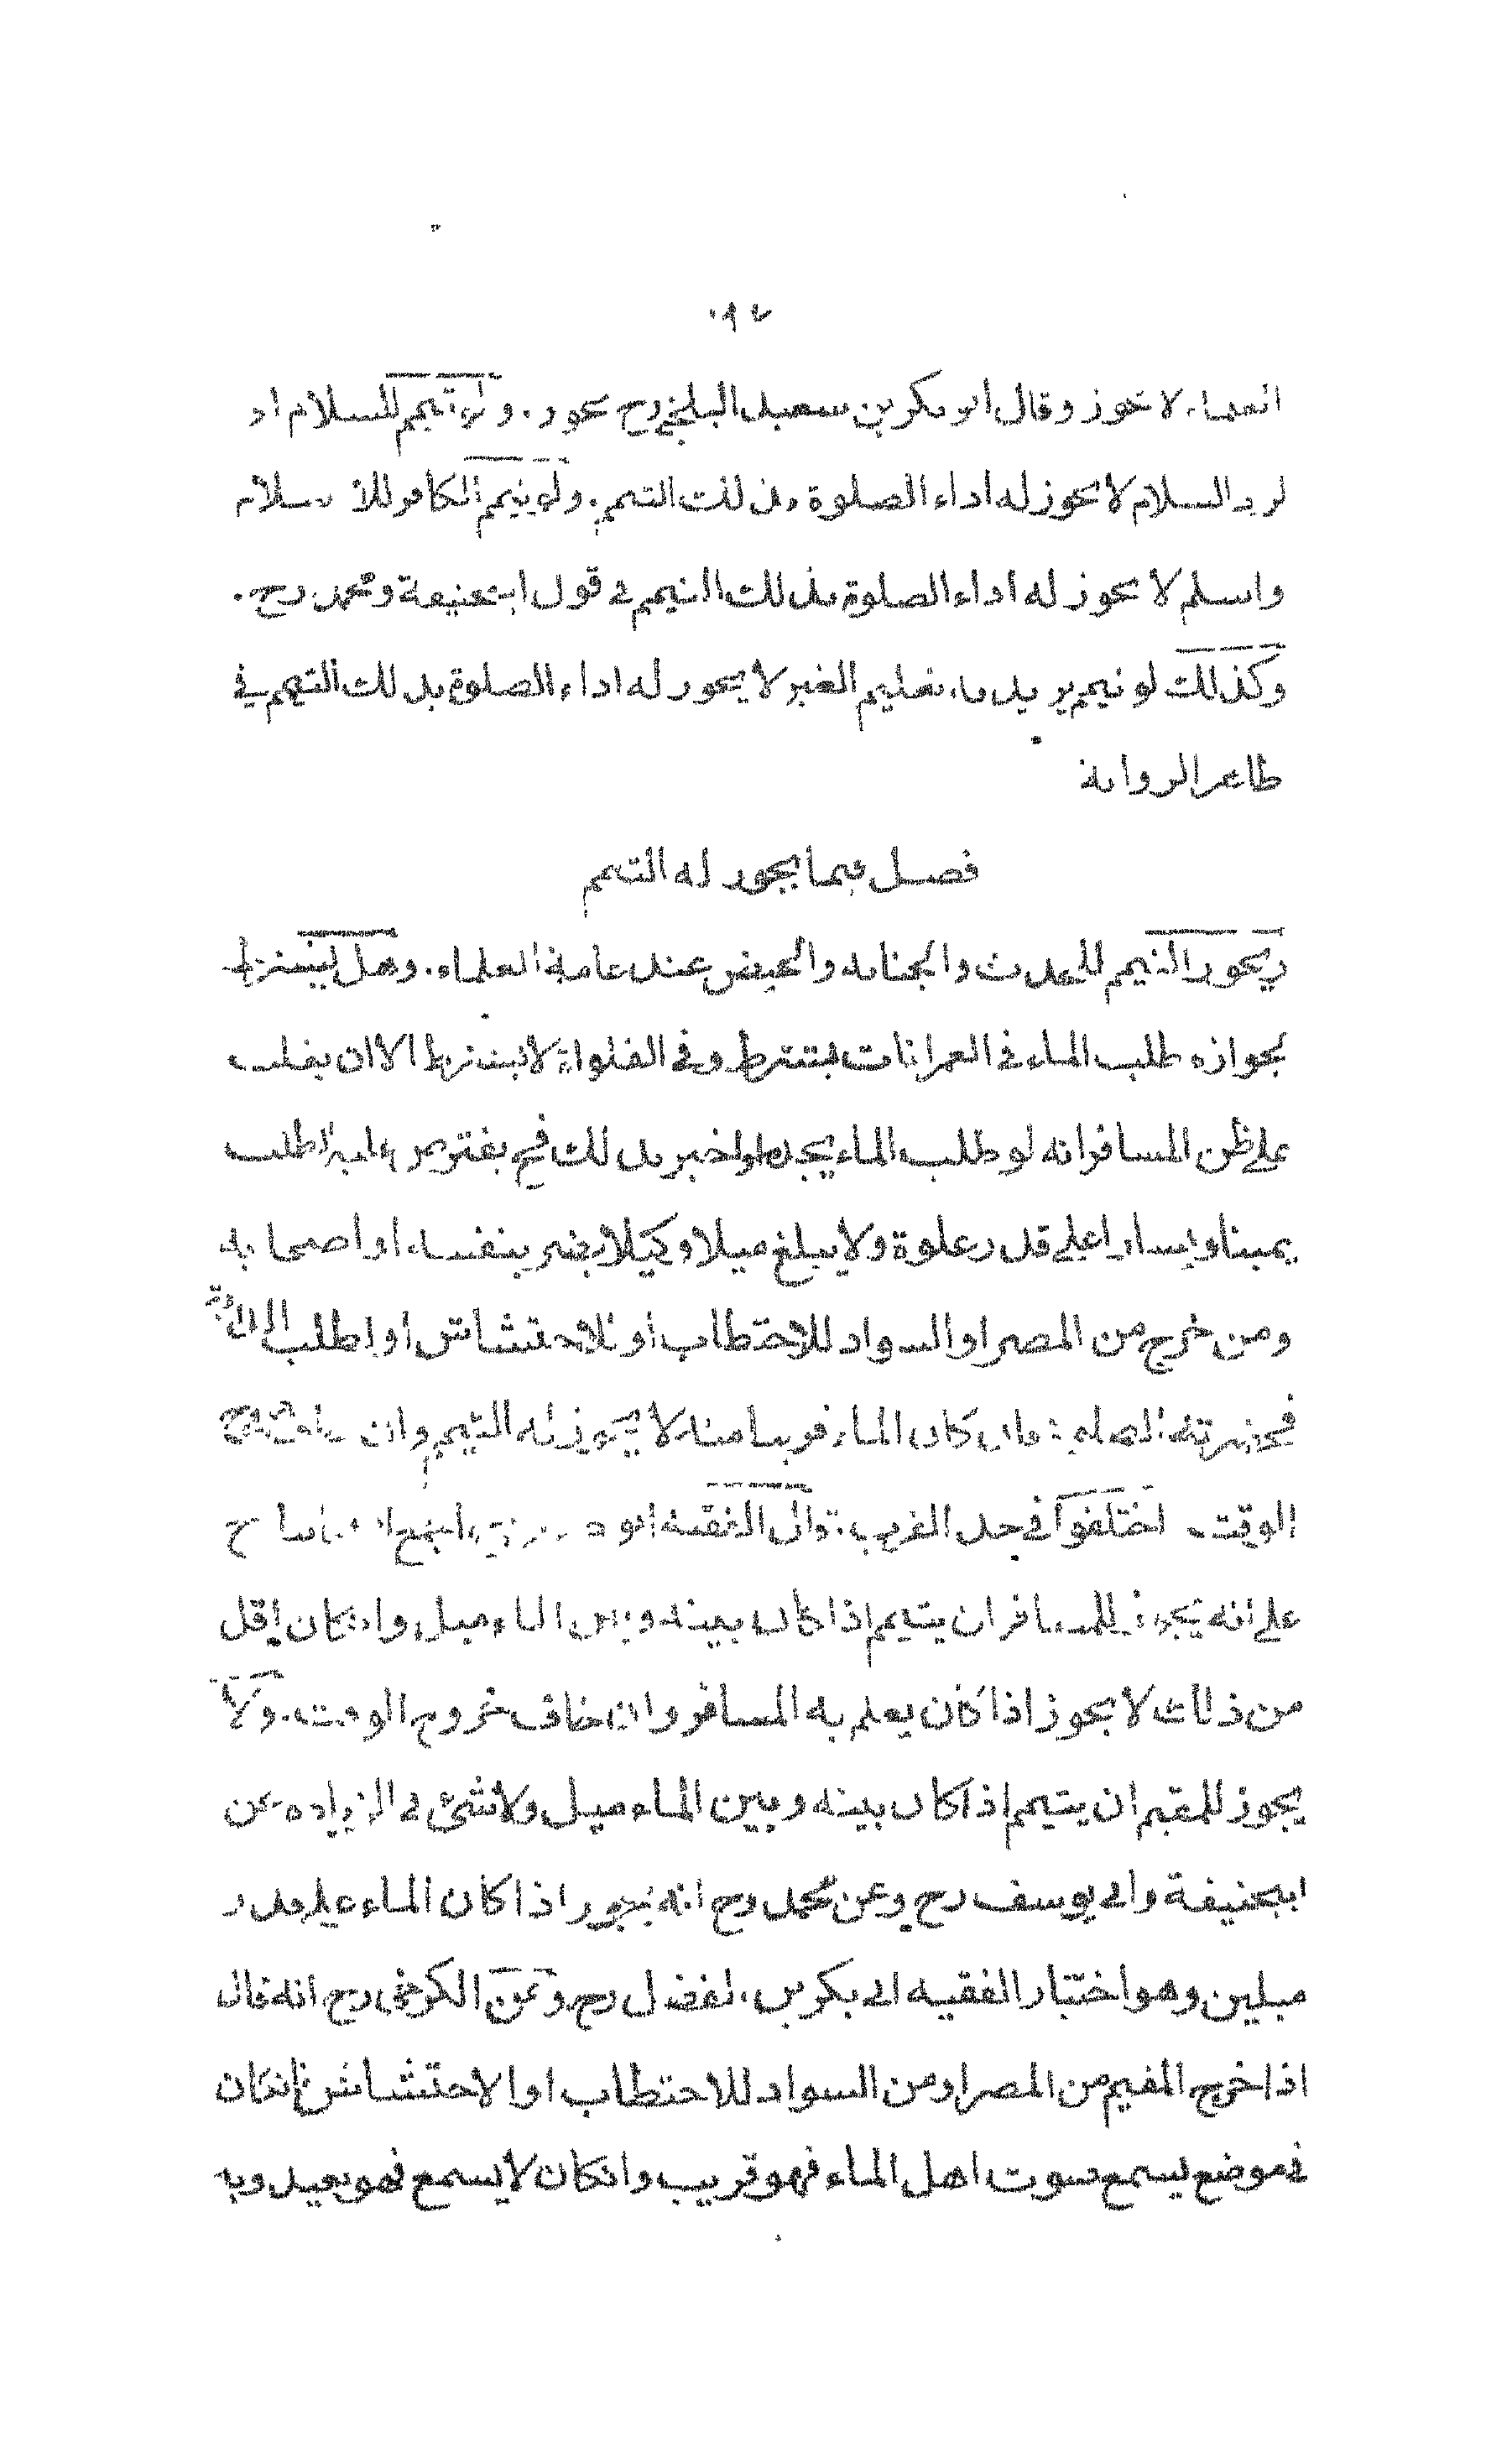 العلماء لا يجوز وقال ابو بكر بن سعيد البلخي رح يجوز . ولو تيمم للسلام او
لرد السلام لا يجوز له اداء الصلوة بذلك التيمم . ولو تيمم الكافر للاسلام
واسلم لا يجوز له اداء الصلوة بذلك التيمم في قول ابيحنيفة ومحمد رح .
وكذلك لو تيمم يريد به تعليم الغير لا يجوز له اداء الصلوة بذلك التيمم في
ظاهر الرواية
فصل فيما يجوز له التيمم
يجوز التيمم للحدث والجنابه والحيض عند عامة العلماء . وهل يشترط
لجوازه طلب الماء في العمرانات يشترط وفي الفلوات لا يشترط الا ان يغلب
على ظن المسافر انه لو طلب الماء يجده او اخبر بذلك فح يفترض عليه الطلب
يمينا ويسارا على قدر غلوة ولا يبلغ ميلا وكيلا يضر بنفسه او اصحابه
ومن خرج من المصر او السواد للاحتطاب او للاحتشاش او لطلب الدابة
فحضرته الصلوة فان كان الماء قريبا منه لا يجوز له التيمم وان خاف خروج
الوقت اختلفوا في حد القرب . قال الفقيه ابو اجمع
على انه يجوز للمسافر ان يتيمم اذا كان بينه وبين الماء ميل وان كان اقل
من ذلك لا يجوز اذا كان يعلم به المسافر وان خاف خروج الوقت . ولا
يجوز للمقيم ان يتيمم اذا كان بينه وبين الماء ميل ولا شئ في الزياده عن
ابيحنيفة وابي يوسف رح وعن محمد رح انه يجوز اذا كان الماء على قدر
ميلين وهو اختيار الفقيه ابي بكر بن الفضل رح . وعن الكرخي رح انه قال
اذا خرج المقيم من المصر او من السواد للاحتطاب او الاحتشاش فانكان
في موضع يسمع صوت اهل الماء فهو قريب وانكان لا يسمع فهو بعيد وبه